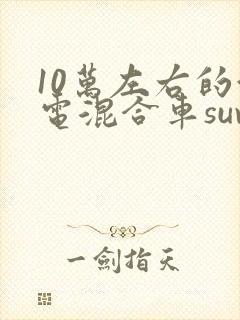 10萬左右的
電混合車suv
一劍指天